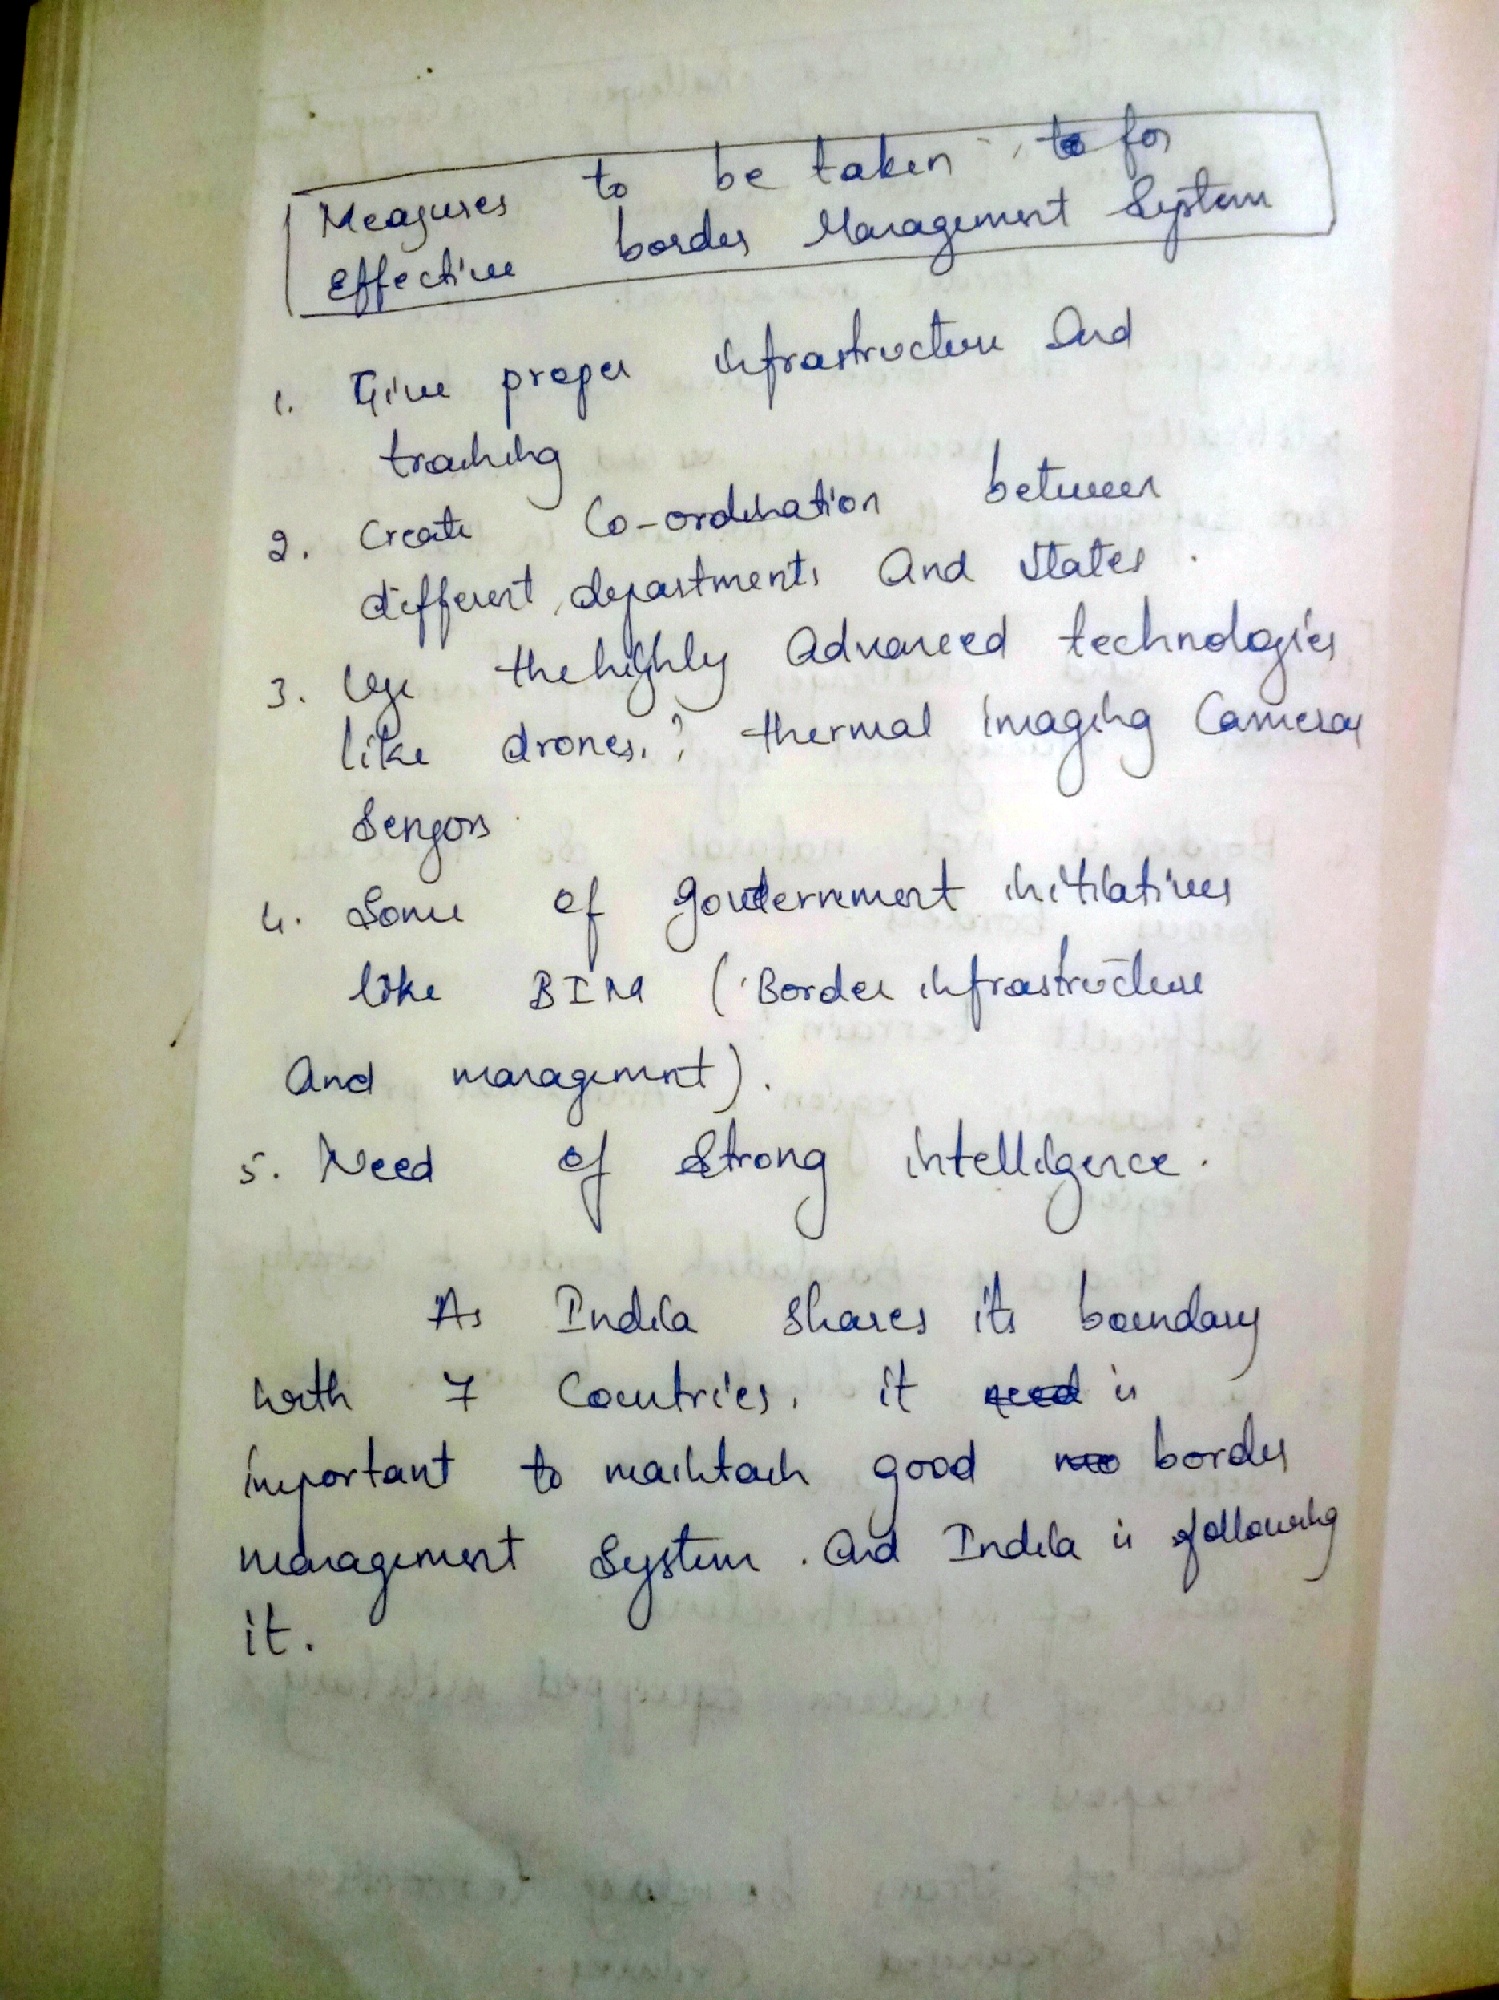 Measures to be taken for
Effective border Management System
1. Give proper infrastructure and
training
2. Create Co-ordination between
different departments and states.
3. Use the highly advanced technologies
like drones, thermal imaging Cameras
Sensors
4. Some of government initiatives
like BIM (Border infrastructure
and management).
5. Need of strong intelligence.
As India shares its boundary
with 7 Countries, it is
important to maintain good border
management System. And India is following
it.